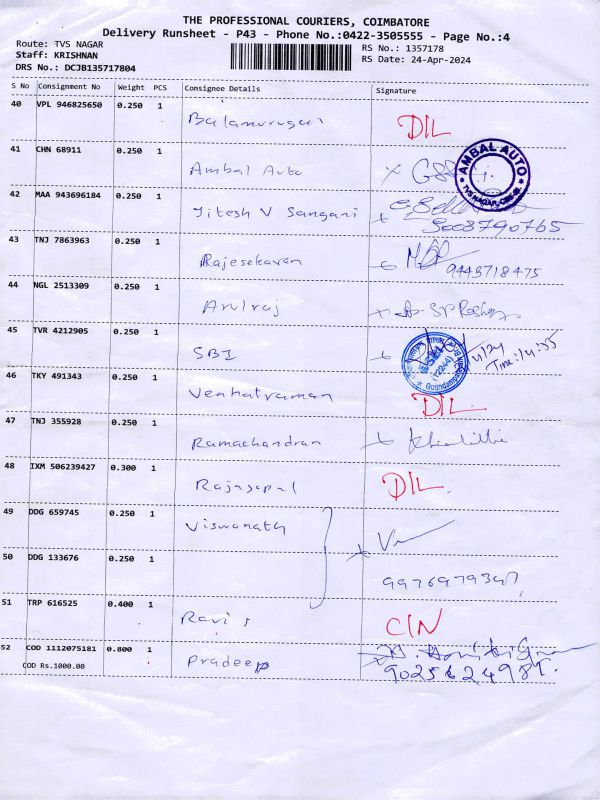 THE PROFESSIONAL COURIERS, COIMBATORE
Delivery Runsheet - P43 - Phone No.:0422-3505555 - Page No.:4
Route: TVS NAGAR
Staff: KRISHNAN
DRS No.: DCJB135717804
RS No.: 1357178
RS Date: 24-Apr-2024
S No Consignment No Weight PCS Consignee Details Signature
40 VPL 946825650 0.250 1 Balamurugan DIL
41 CHN 68911 0.250 1 Ambal Auto
AMBAL AUTO
TVS NAGAR, CBE
42 MAA 943696184 0.250 1 Jitesh V Sangani
43 TNJ 7863963 0.250 1 Rajesekaran 9443718475
44 NGL 2513309 0.250 1 Arulraj
45 TVR 4212905 0.250 1 SBI
46 TKY 491343 0.250 1 Venkatraman DIL
47 TNJ 355928 0.250 1 Ramachandran
48 IXM 506239427 0.300 1 Rajagopal DIL
49 DDG 659745 0.250 1 Viswanath
50 DDG 133676 0.250 1
51 TRP 616525 0.400 1 Ravi s CIN
52 COD 1112075181 0.800 1 Pradeep
COD Rs.1000.00